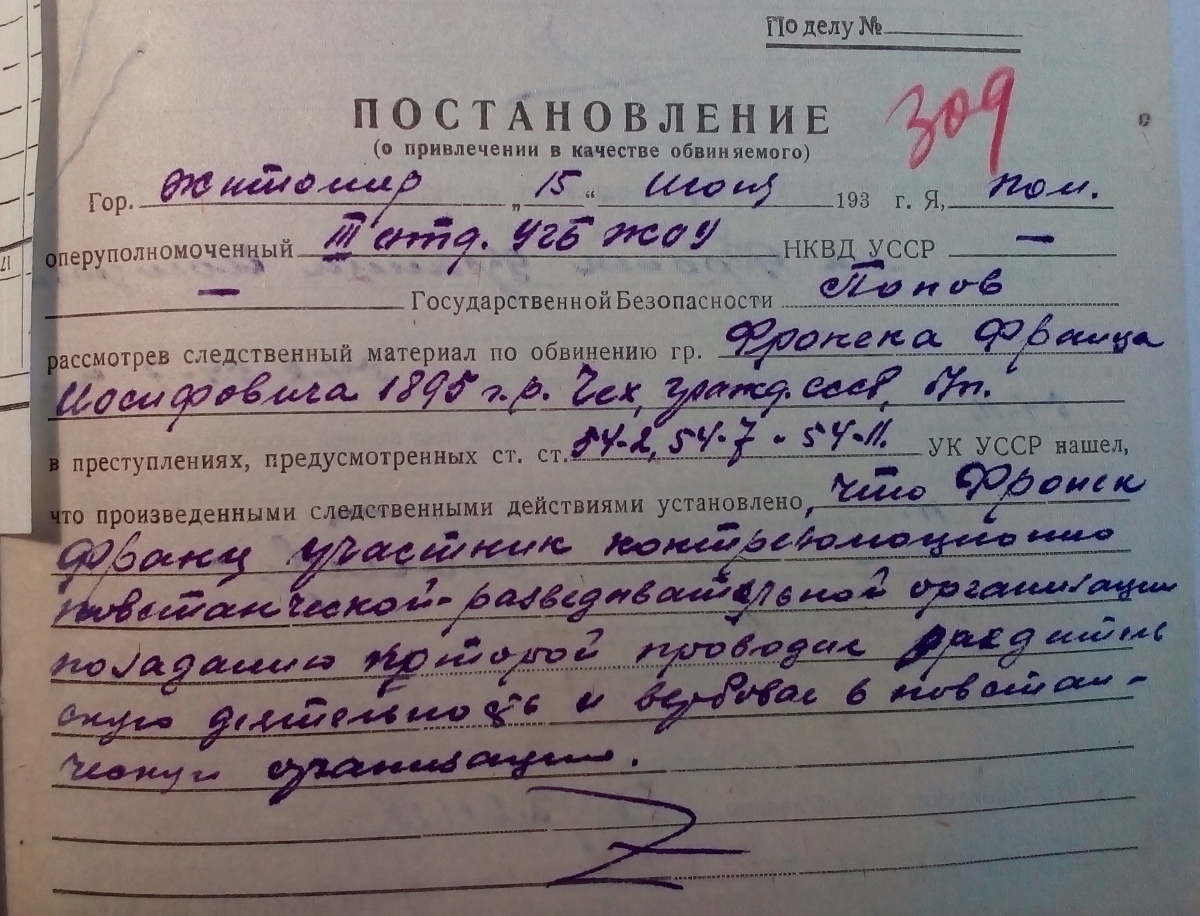 По делу №
309
ПОСТАНОВЛЕНИЕ
(о привлечении в качестве обвиняемого)
Гор. Житомир „15“ Июня 193 г. Я, пом.
оперуполномоченный III отд. УГБ ЖОУ НКВД УССР —
— Государственной Безопасности Попов
рассмотрев следственный материал по обвинению гр. Фронека Франца
Иосифовича 1895 г.р. Чех, гражд. СССР, б/п.
в преступлениях, предусмотренных ст. ст. 54-2, 54-7 и 54-11. УК УССР нашел,
что произведенными следственными действиями установлено, что Фронек
Франц участник контрреволюционно
повстанческой-разведывательной организации
по заданию которой проводил вредитель
скую деятельность и вербовал в повстан-
ческую организацию.